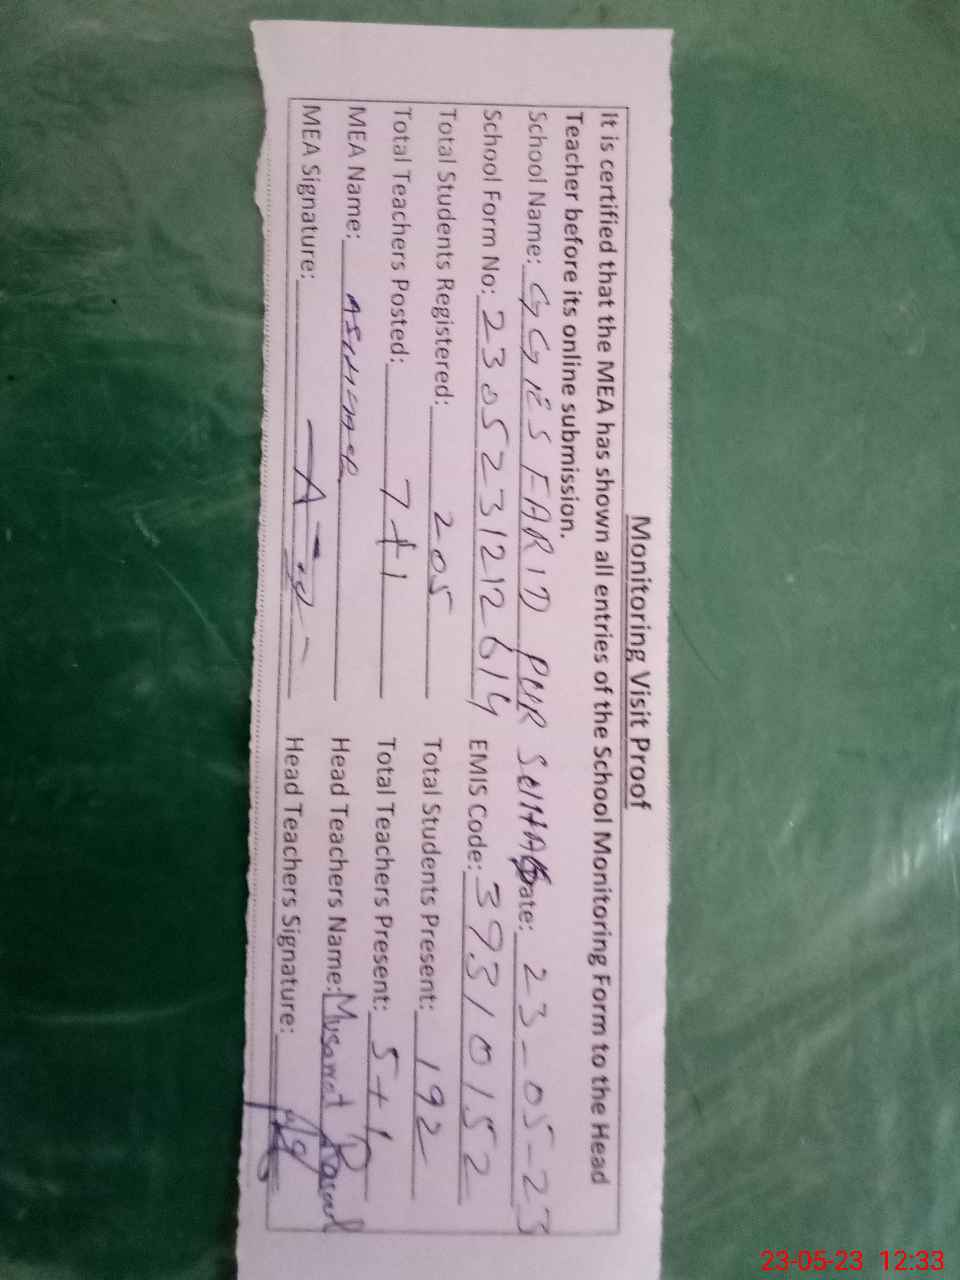 Monitoring Visit Proof
It is certified that the MEA has shown all entries of the School Monitoring Form to the Head
Teacher before its online submission.
School Name: GGES FARID PUR Date: 23-05-23
School Form No: 2305231212614 EMIS Code: 39310152
Total Students Registered: 205 Total Students Present: 192
Total Teachers Posted: 7+1 Total Teachers Present: 5+1
MEA Name: Head Teachers Name: Musarat Rasool
MEA Signature: Head Teachers Signature:
23-05-23 12:33